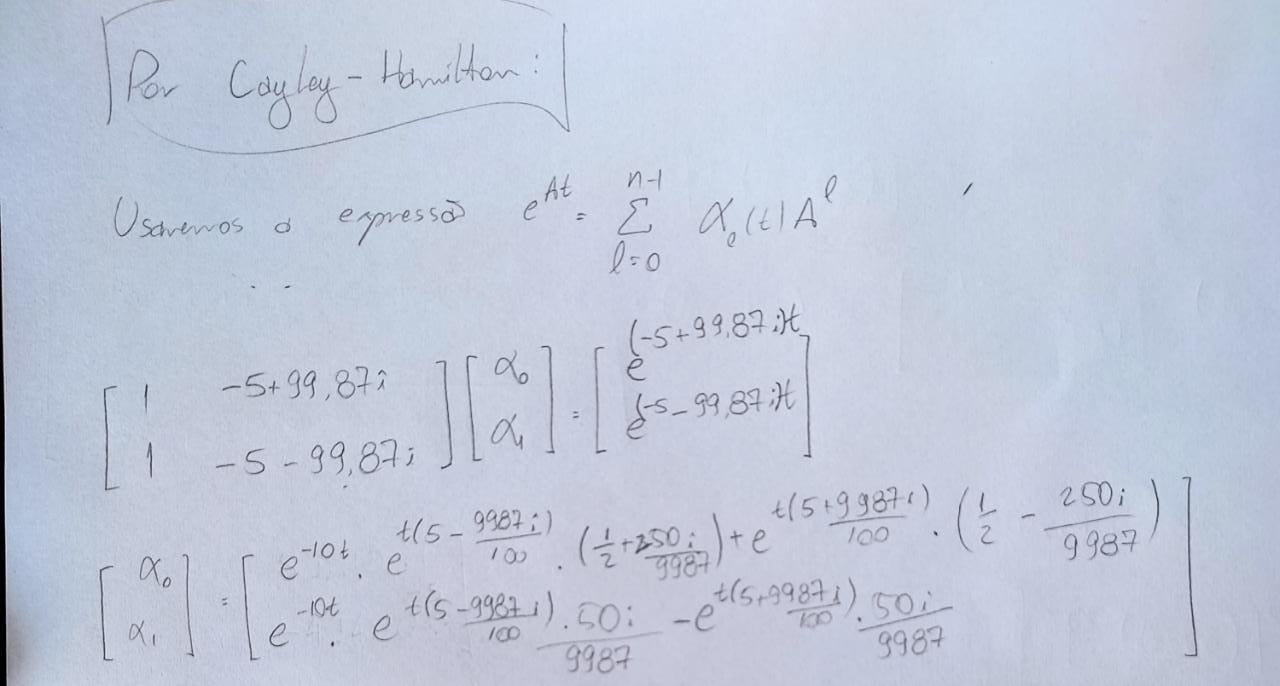 Por Cayley-Hamilton:
Usaremos a expressão e^{At} = \sum_{l=0}^{n-1} α_l(t) A^l
[1 -5+99,87i; 1 -5-99,87i] [α_0; α_1] = [e^{(-5+99,87i)t}; e^{(-5-99,87i)t}]
[α_0; α_1] = [e^{-10t} . e^{t(5 - 9987i/100)} . (1/2 + 250i/9987) + e^{t(5 + 9987i/100)} . (1/2 - 250i/9987); e^{-10t} . e^{t(5 - 9987i/100)} . 50i/9987 - e^{t(5 + 9987i/100)} . 50i/9987]